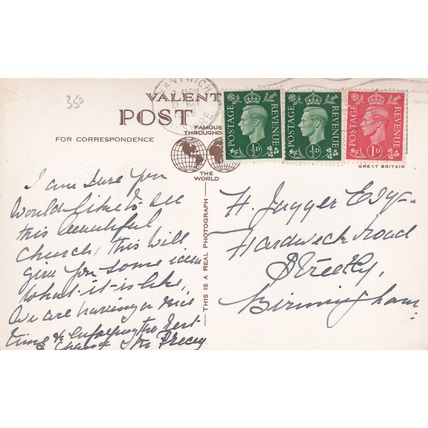 350
VALENT
POST
FAMOUS
THROUGHO
THE
WORLD
FOR CORRESPONDENCE
POSTAGE REVENUE
½D
POSTAGE REVENUE
½D
POSTAGE REVENUE
1D
GREAT BRITAIN
THIS IS A REAL PHOTOGRAPH
I am sure you
would like to see
this beautiful
church, this will
give you some idea
what it is like,
We are having a nice
time & enjoying the rest
& change
H. Jagger Esq.
Hardwick Road
Streetly,
Birmingham.